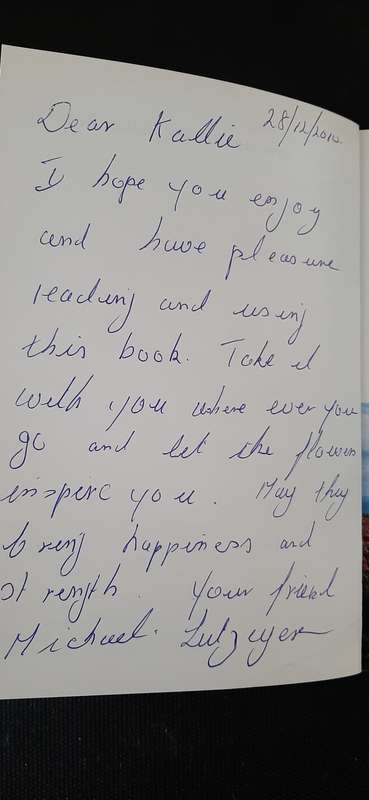 Dear Kallie 28/12/2010
I hope you enjoy
and have pleasure
reading and using
this book. Take it
with you where ever you
go and let the flowers
inspire you. May they
bring happiness and
strength. Your friend
Michael.